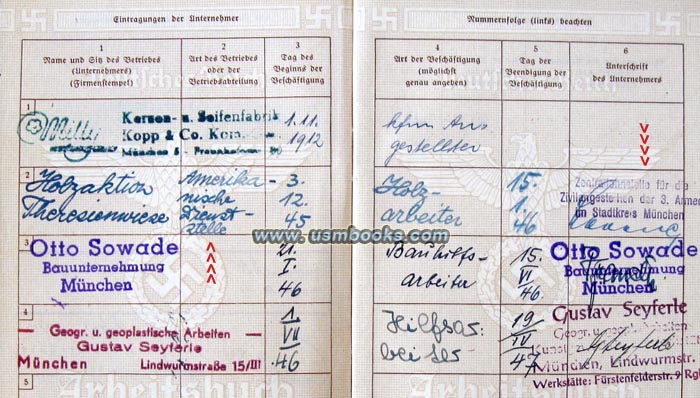 Eintragungen der Unternehmer
1
Name und Sitz des Betriebes
(Unternehmers)
(Firmenstempel)
2
Art des Betriebes
oder der
Betriebsabteilung
3
Tag des
Beginns der
Beschäftigung
1
Kerzen- u. Seifenfabrik
Kopp & Co. Kom.
München 5 -
1.11.
1912
2
Holzaktion
Theresienwiese
Amerika-
nische
Dienst-
stelle
3.
12.
45
3
Otto Sowade
Bauunternehmung
München
21.
I.
46
4
Geogr. u. geoplastische Arbeiten
Gustav Seyferle
München Lindwurmstraße 15/III
1
VII
46
5
Arbeitsbuch
Nummernfolge (links) beachten
4
Art der Beschäftigung
(möglichst
genau angeben)
5
Tag der
Beendigung der
Beschäftigung
6
Unterschrift
des Unternehmers
kfm Ange
gestellter
Holz-
arbeiter
15.
1.
46
Zentralanstelle für die
Zivilangestellten der 3. Armee
im Stadtkreis München
Bauhilfs-
arbeiter
15.
VI
46.
Otto Sowade
Bauunternehmung
München
Hilfsar:
beiter
19
IV
47
Gustav Seyferle
Geogr. u. geoplastische Arbeiten
München, Lindwurmstr.
Werkstätte: Fürstenfelderstr. 9 Rg
Arbeitsbuch
www.usmbooks.com